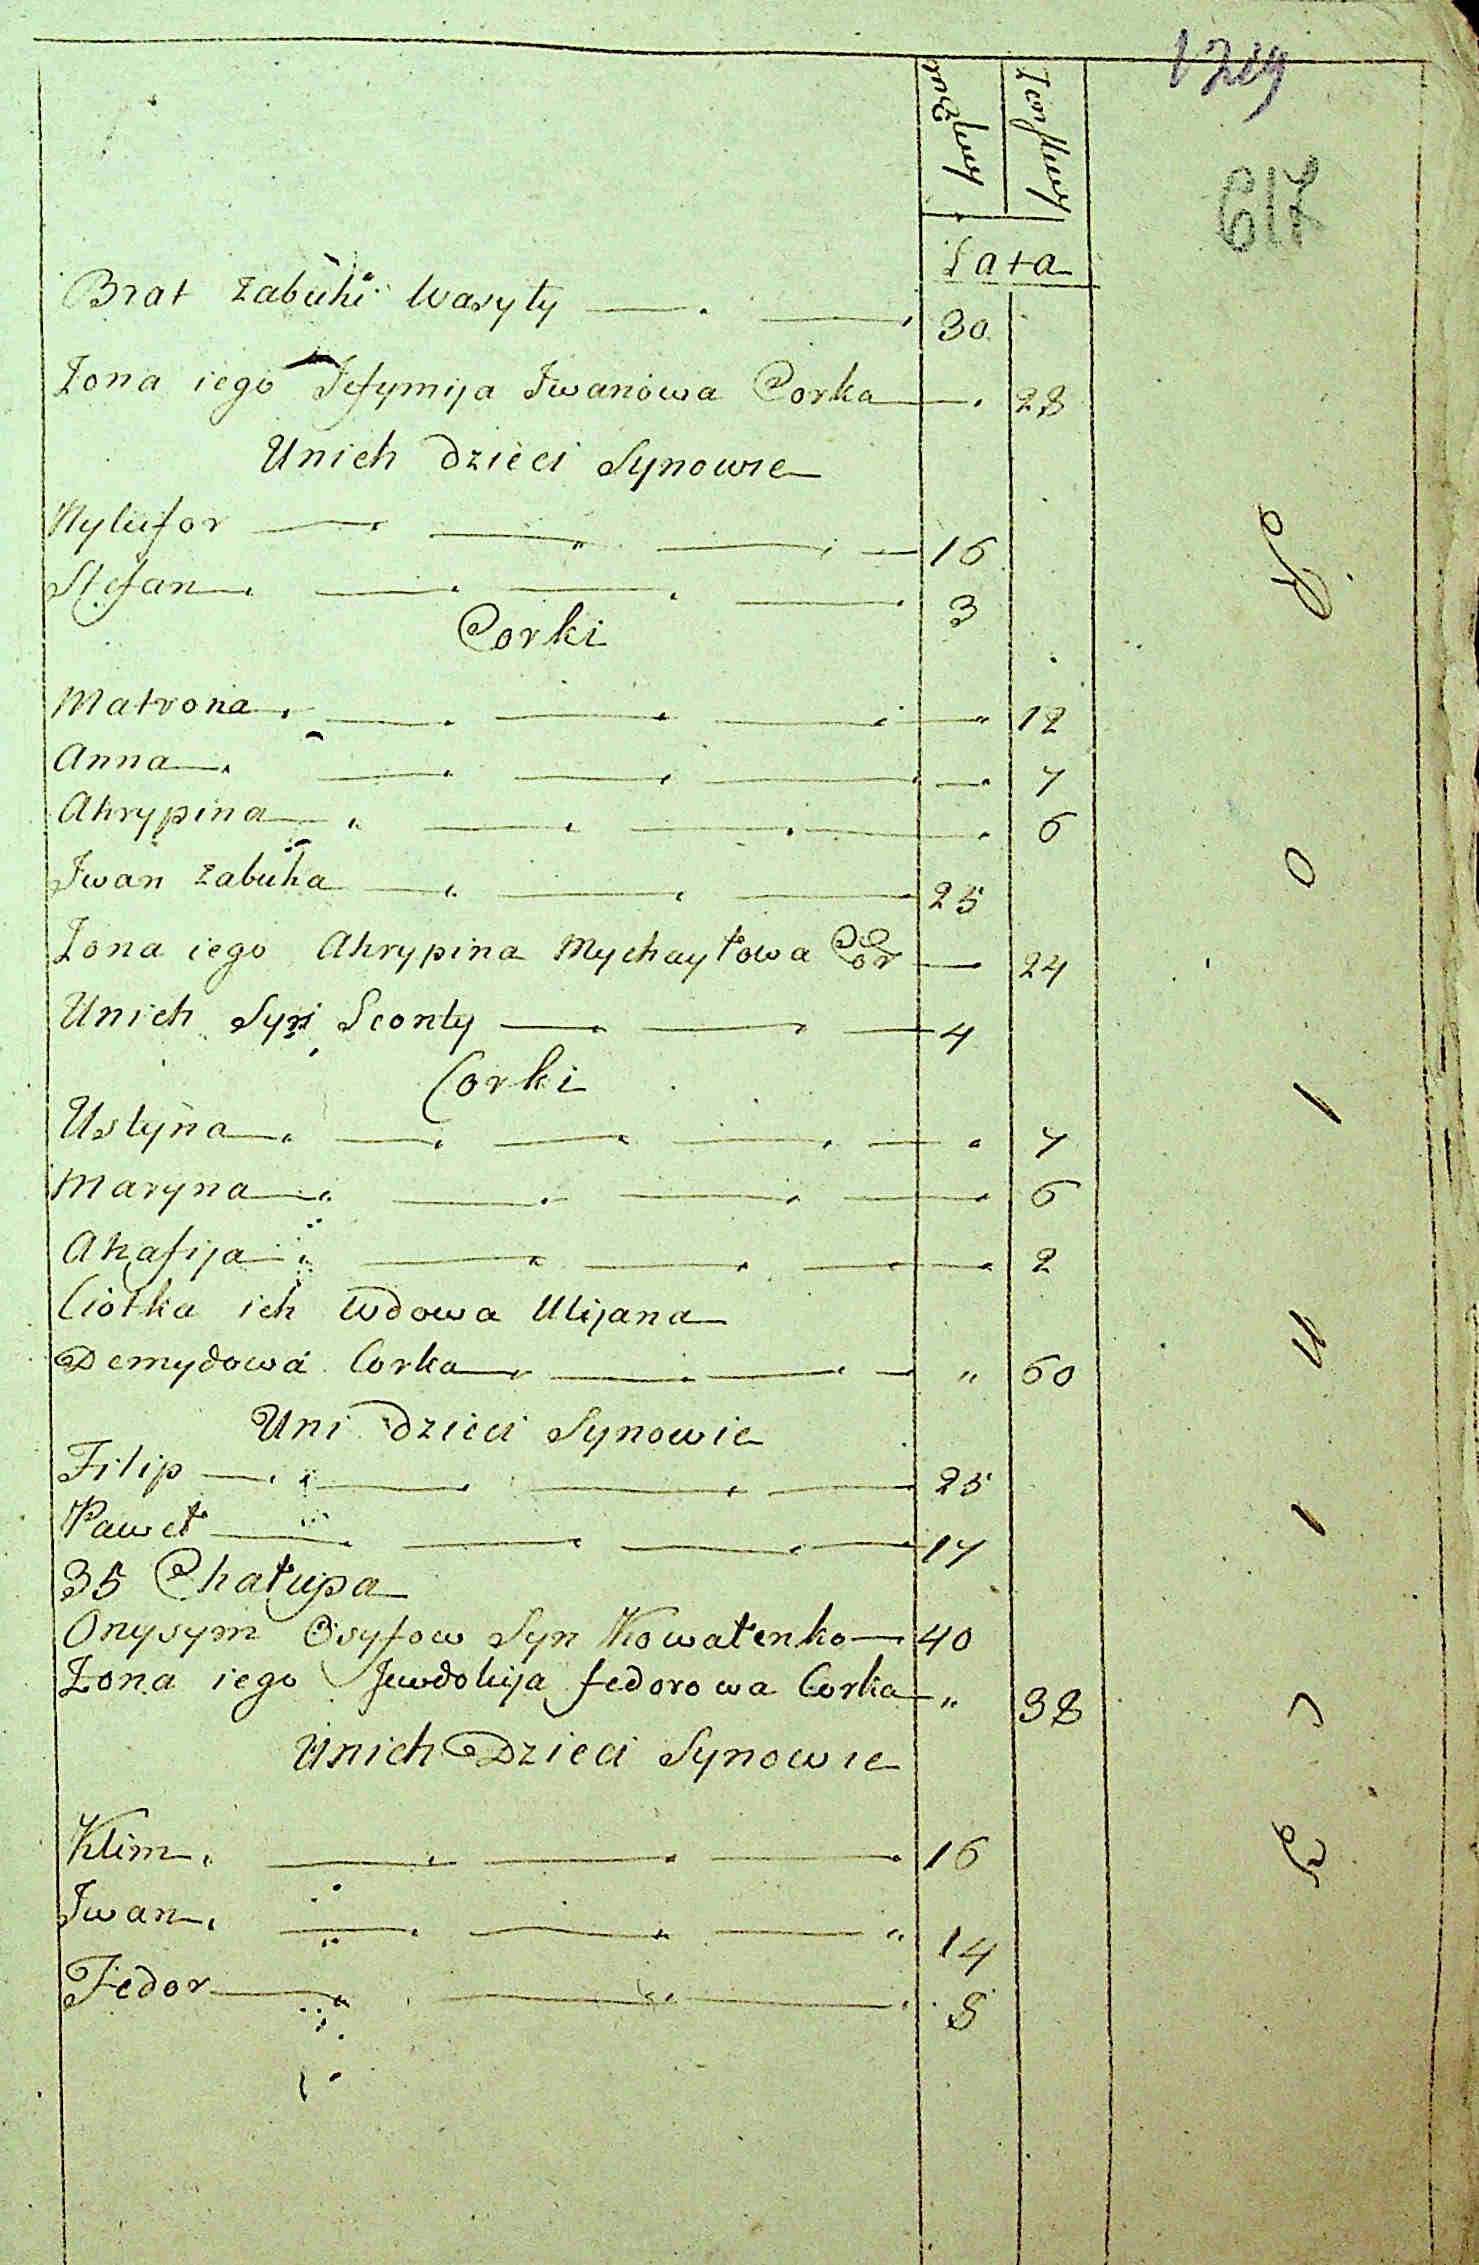 1219
617
męskiey
żenskiey
Lata
Brat Zabuhi Wasyly 30
Zona iego Jefymija Iwanowa Corka 28
Unich Dzieci Synowie
Nykifor 16
Stefan 3
Corki
Matrona 12
Anna 7
Ahrypina 6
Iwan Zabuha 25
Zona iego Ahrypina Mychayłowa Cor 24
Unich Syn Leonty 4
Corki
Ustyna 7
Maryna 6
Ahafija 2
Ciotka ich Wdowa Ulijana
Demydowa Corka " 60
Uni Dzieci Synowie
Filip 25
Paweł 17
35 Chałupa
Onysym Osyfow Syn Kowałenko 40
Zona iego Jewdokija Fedorowa Corka " 38
Unich Dzieci Synowie
Klim 16
Iwan 14
Fedor 8